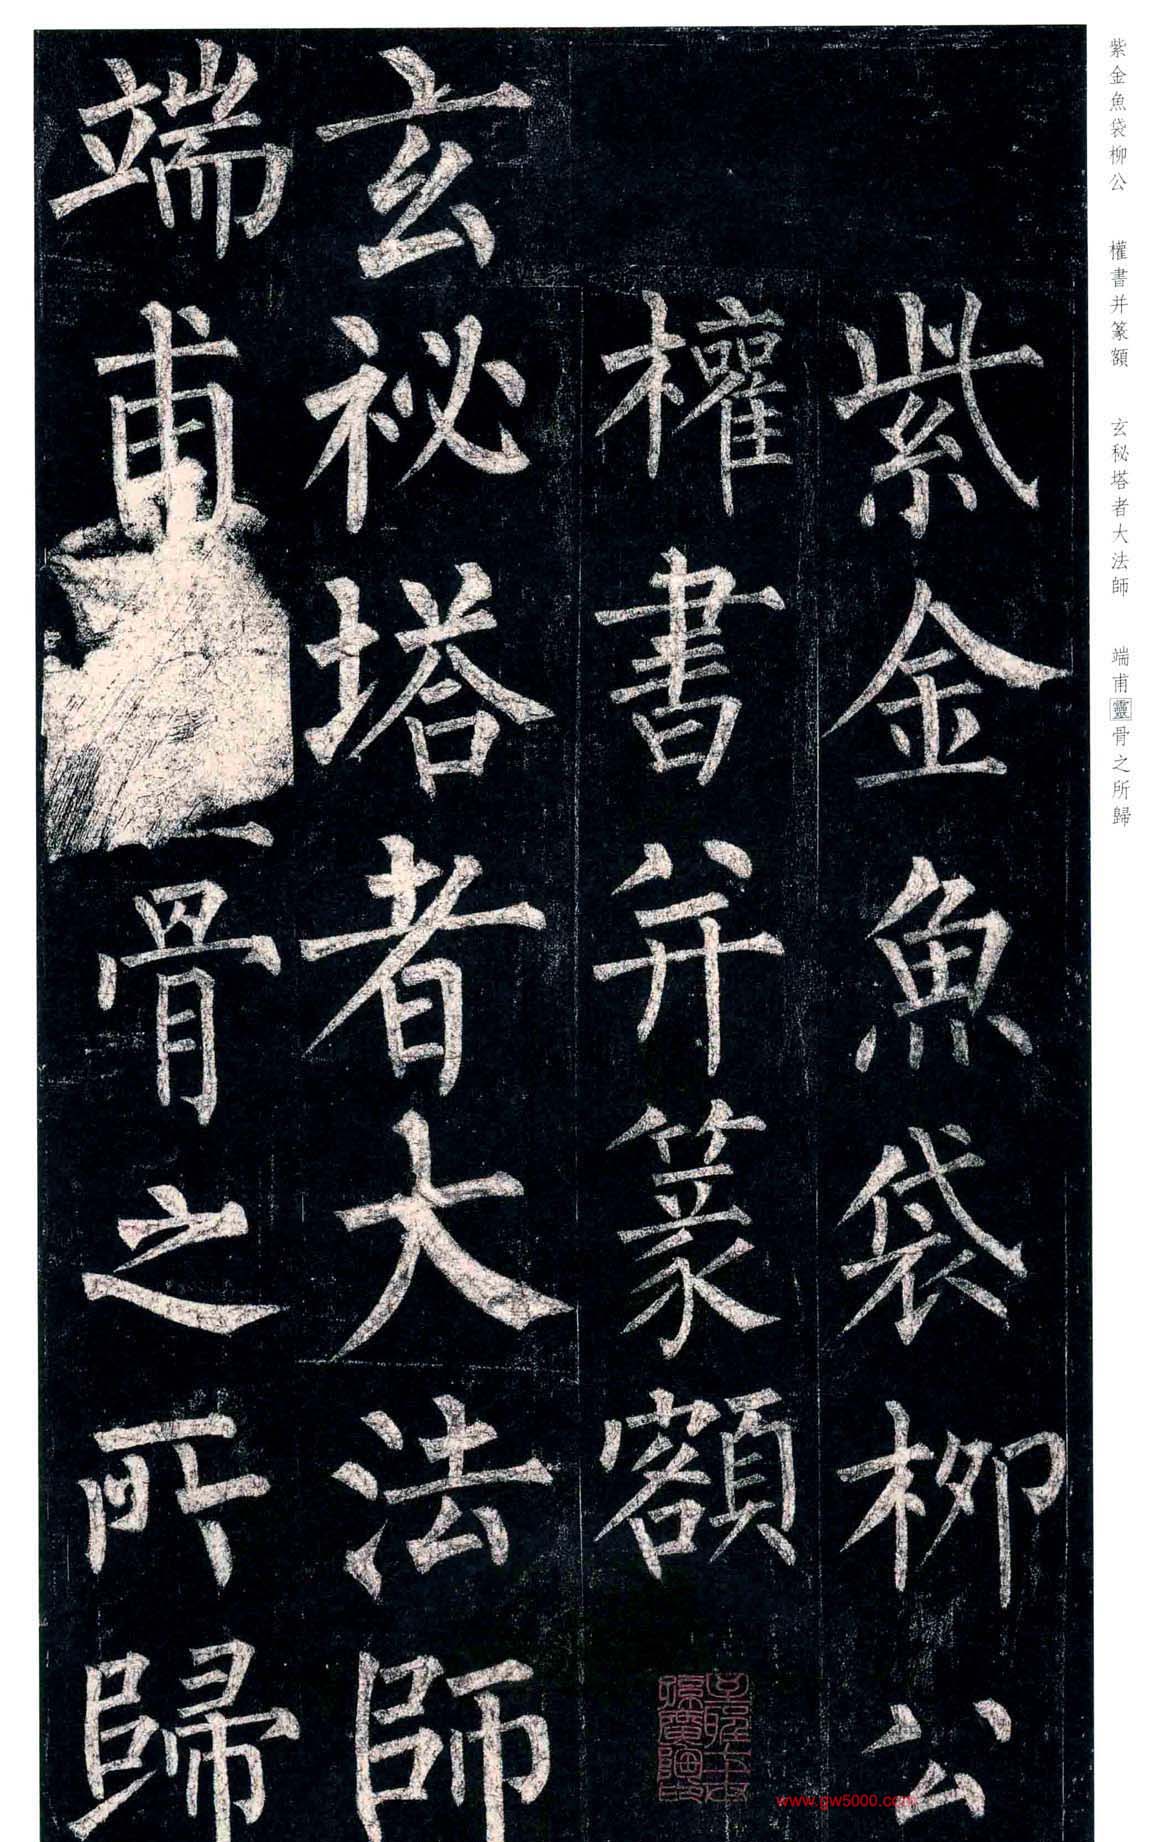 紫金魚袋柳公
權書并篆額
玄祕塔者大法師
端甫骨之所歸
紫金魚袋柳公 權書并篆額 玄秘塔者大法師 端甫靈骨之所歸
www.gw5000.com